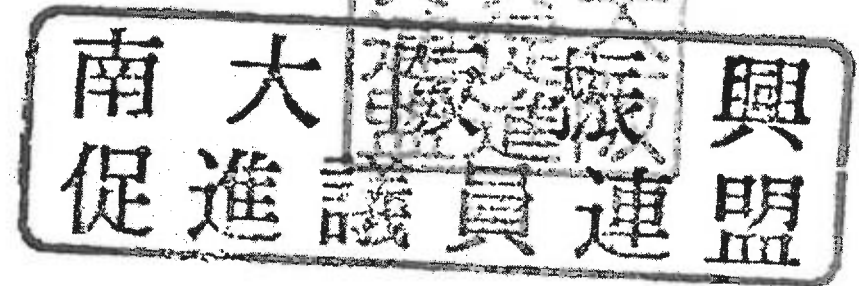 南大阪振興
促進議員連盟